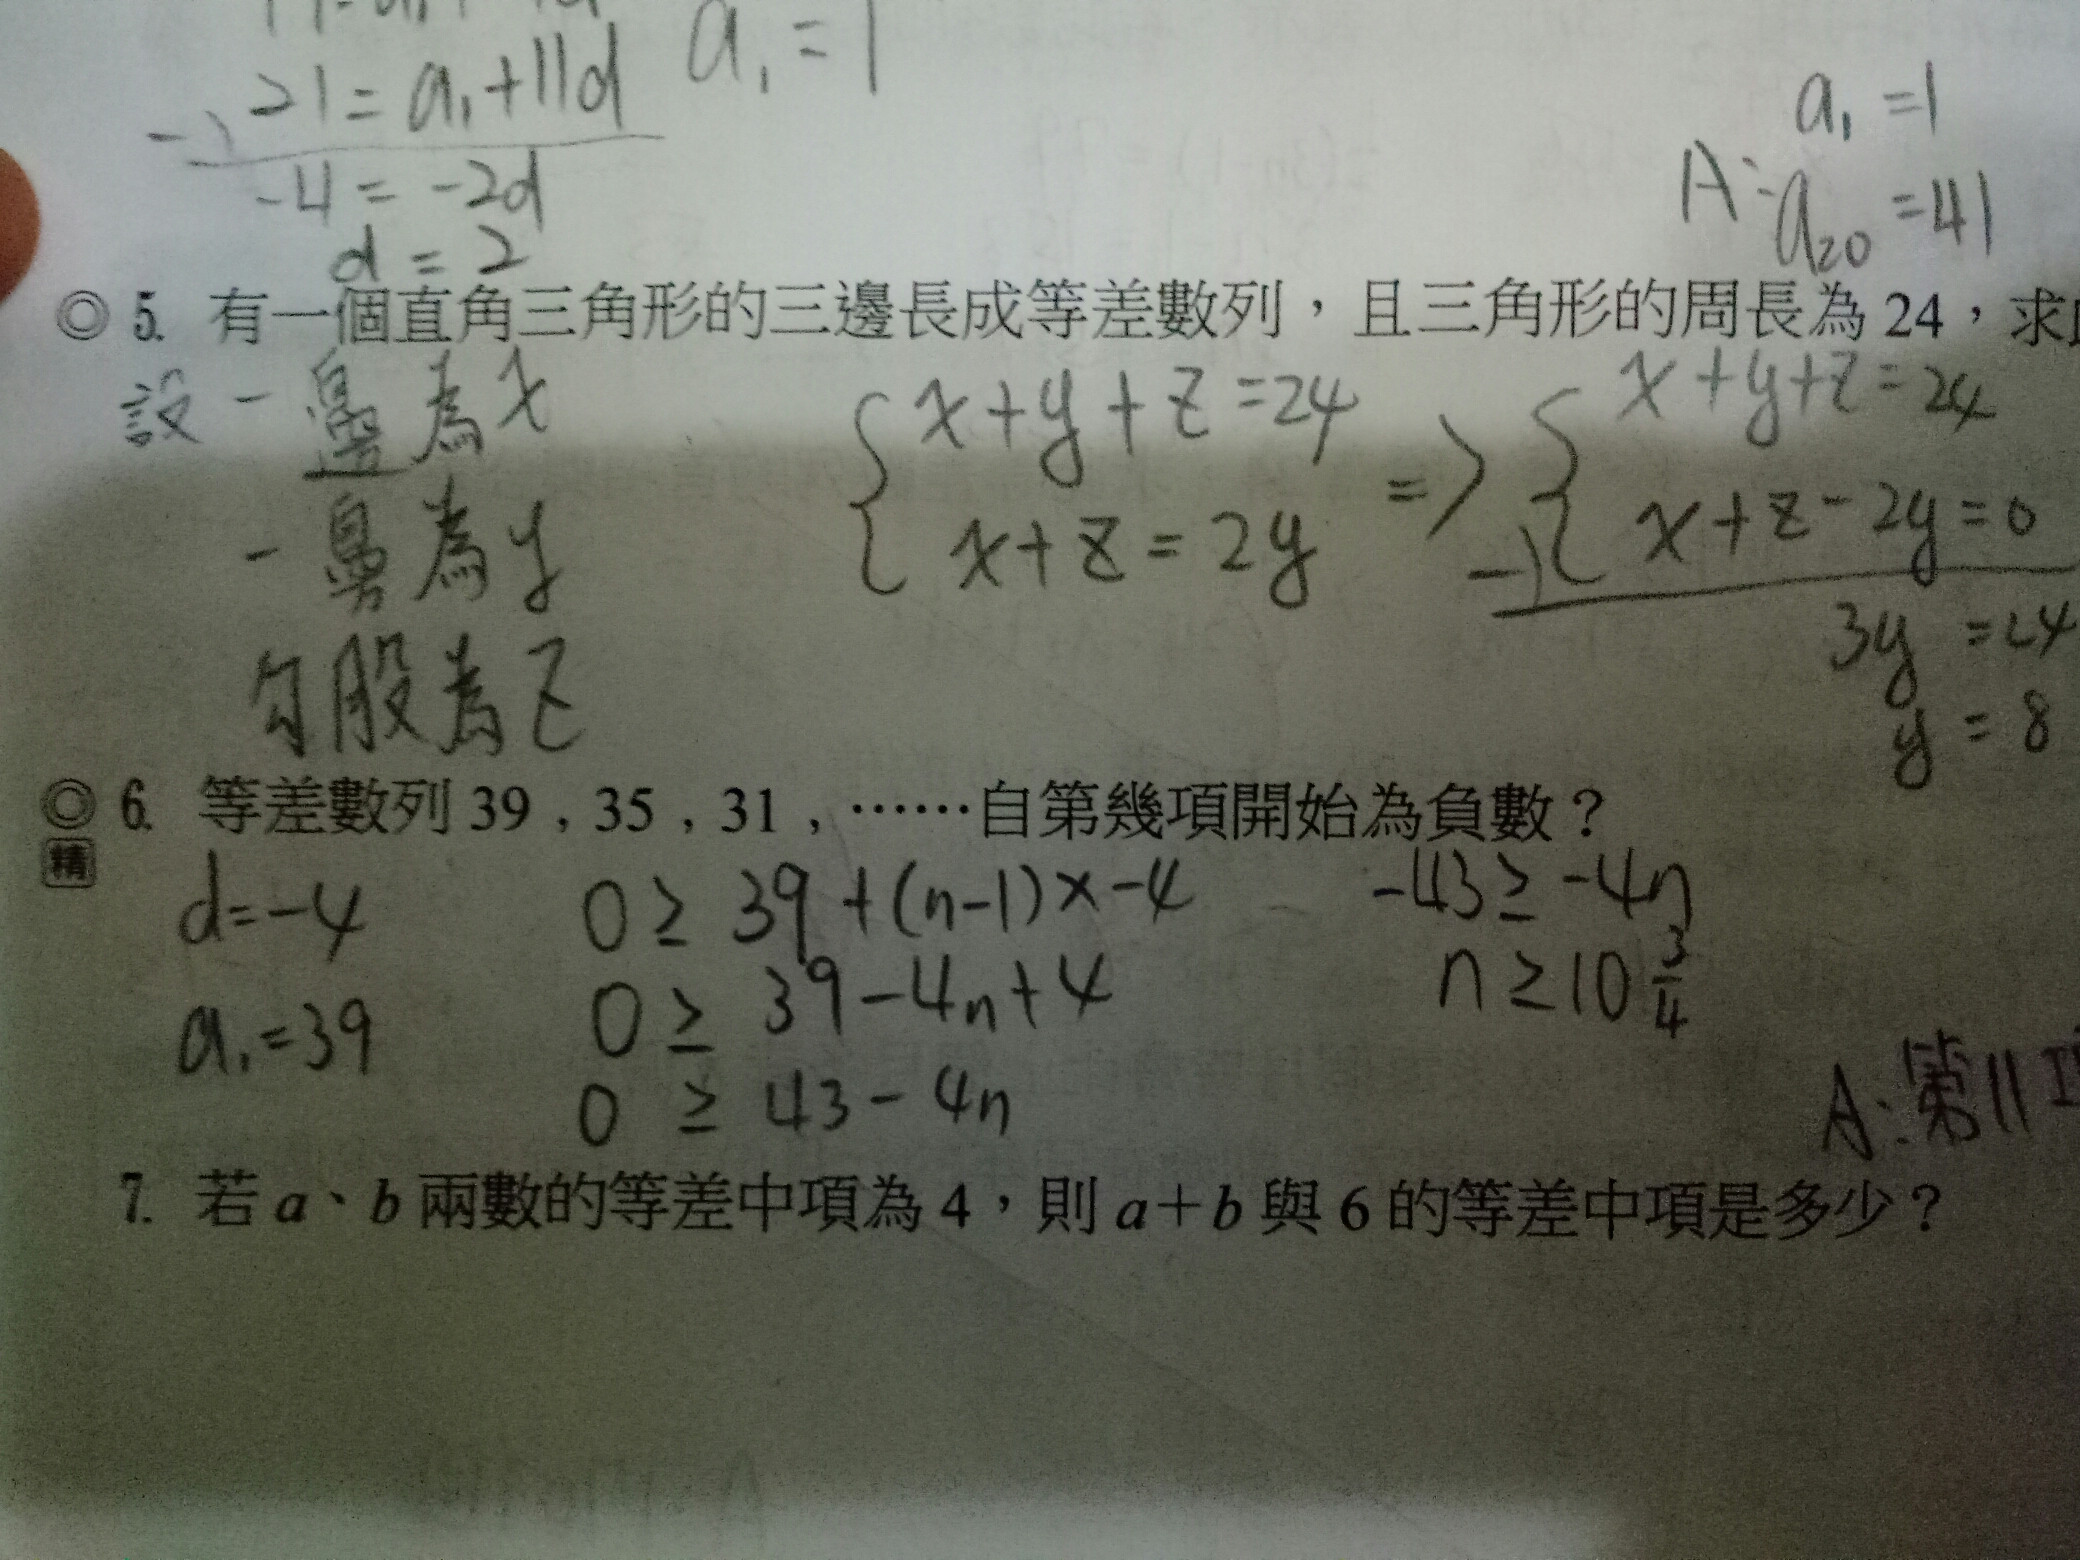 21 = a₁+11d
a₁ = 1
-4 = -2d
d = 2
a₁ = 1
A: a₂₀ = 41
◎ 5. 有一個直角三角形的三邊長成等差數列，且三角形的周長為 24，求
設一邊為x
一為y
勾股為z
x+y+z=24
x+z=2y
=>
x+y+z=24
-) x+z-2y=0
3y = 24
y = 8
◎ 6. 等差數列 39，35，31，……自第幾項開始為負數？
精
d=-4
a₁=39
0 ≥ 39+(n-1)×-4
0 ≥ 39-4n+4
0 ≥ 43-4n
-43 ≥ -4n
n ≥ 10 3/4
A: 第11
7. 若 a、b 兩數的等差中項為 4，則 a+b 與 6 的等差中項是多少？